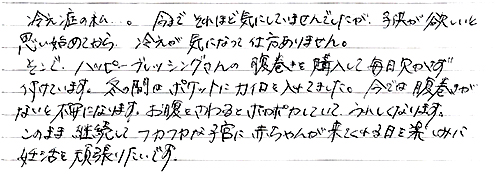 冷え症の私…。今まで それほど気にしていませんでしたが、子供が欲しいと
思い始めてから、冷えが気になって仕方ありません。
そこで、ハッピーブレッシングさんの 腹巻きを購入して毎日欠かさず
付けています。冬の間は ポケットにカイロを入れてました。今では 腹巻きが
ないと不安になります。お腹をさわると ポカポカしていて、うれしくなります。
このまま 継続して フカフカな子宮に 赤ちゃんが来てくれる日を楽しみに
妊活を頑張りたいです。